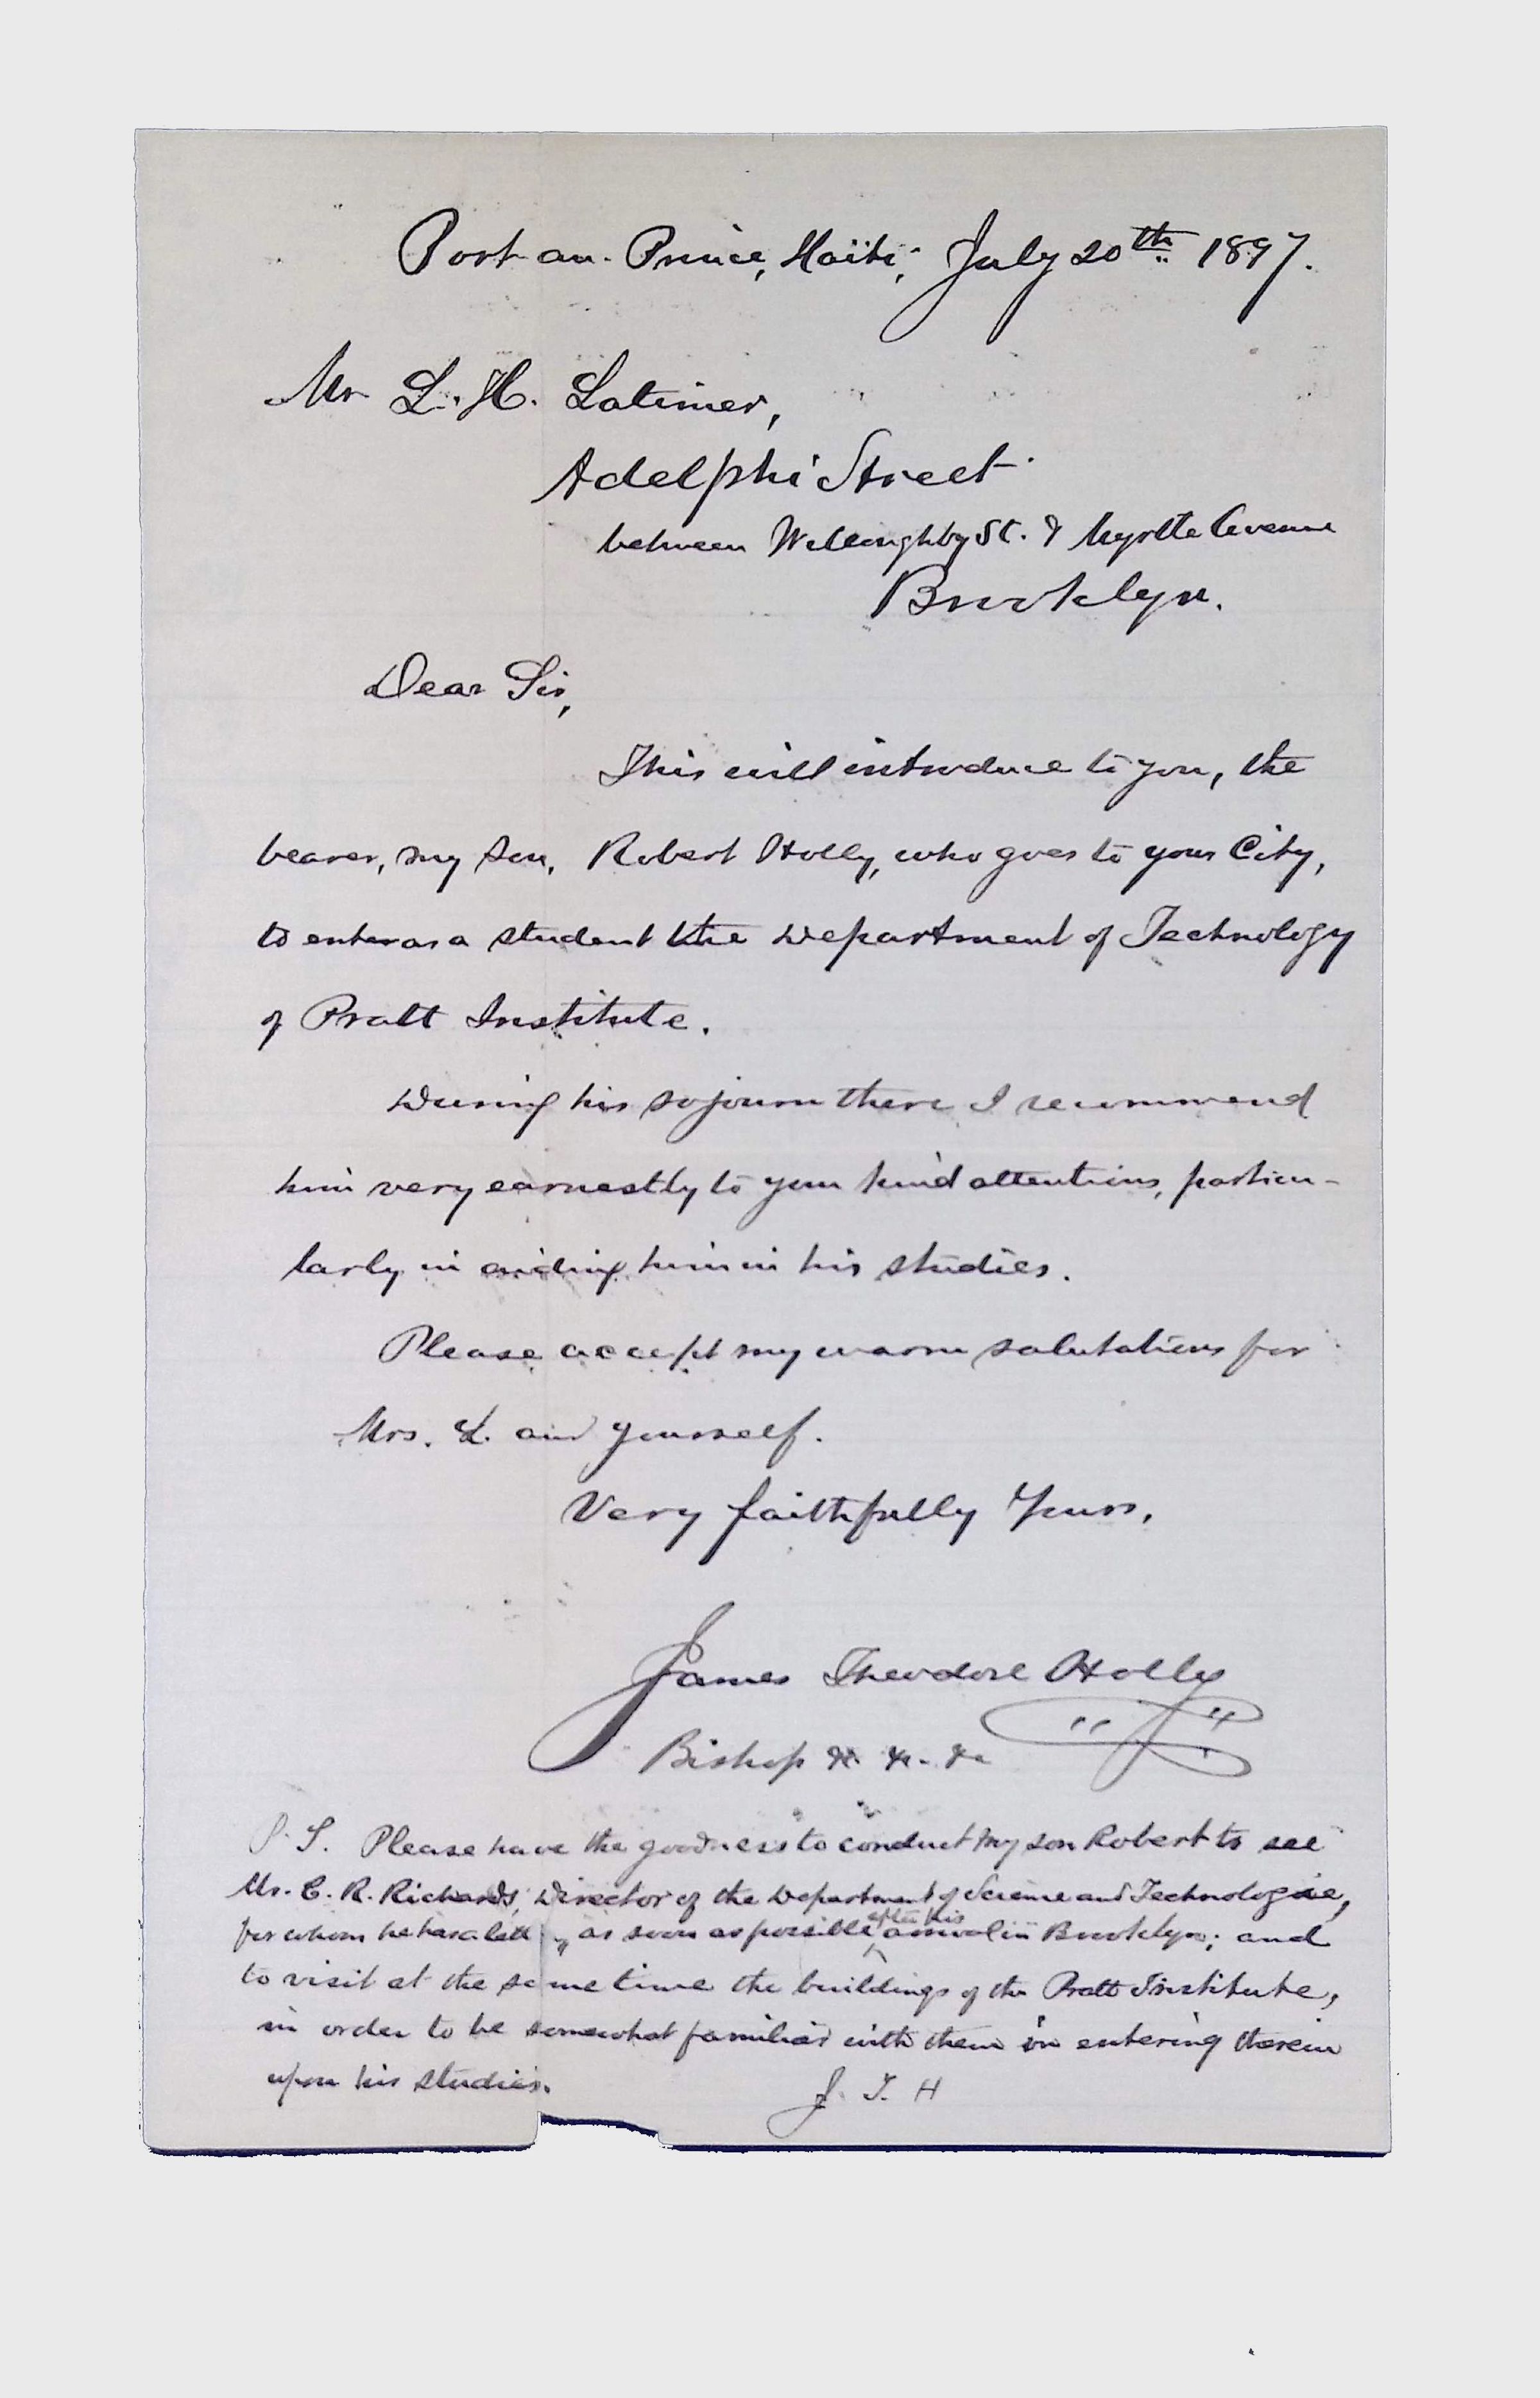 Port-au-Prince, Haïti, July 20th 1897.
Mr L. H. Latimer,
Adelphi Street
between Willoughby St. & Myrtle Avenue
Brooklyn.
Dear Sir,
This will introduce to you, the
bearer, my son, Robert Holly, who goes to your City,
to enter as a student the Department of Technology
of Pratt Institute.
During his sojourn there I recommend
him very earnestly to your kind attentions, particu-
larly in aiding him in his studies.
Please accept my warm salutations for
Mrs. L. and yourself.
Very faithfully Yours,
James Theodore Holly
Bishop &c. &c. &c
P. S. Please have the goodness to conduct my son Robert to see
Mr. C. R. Richards, Director of the Department of Science and Technologie,
for whom he has a lett y as soon as possible after his arrival in Brooklyn; and
to visit at the same time the buildings of the Pratt Institute,
in order to be somewhat familiar with them in entering therein
upon his studies.
J. T. H